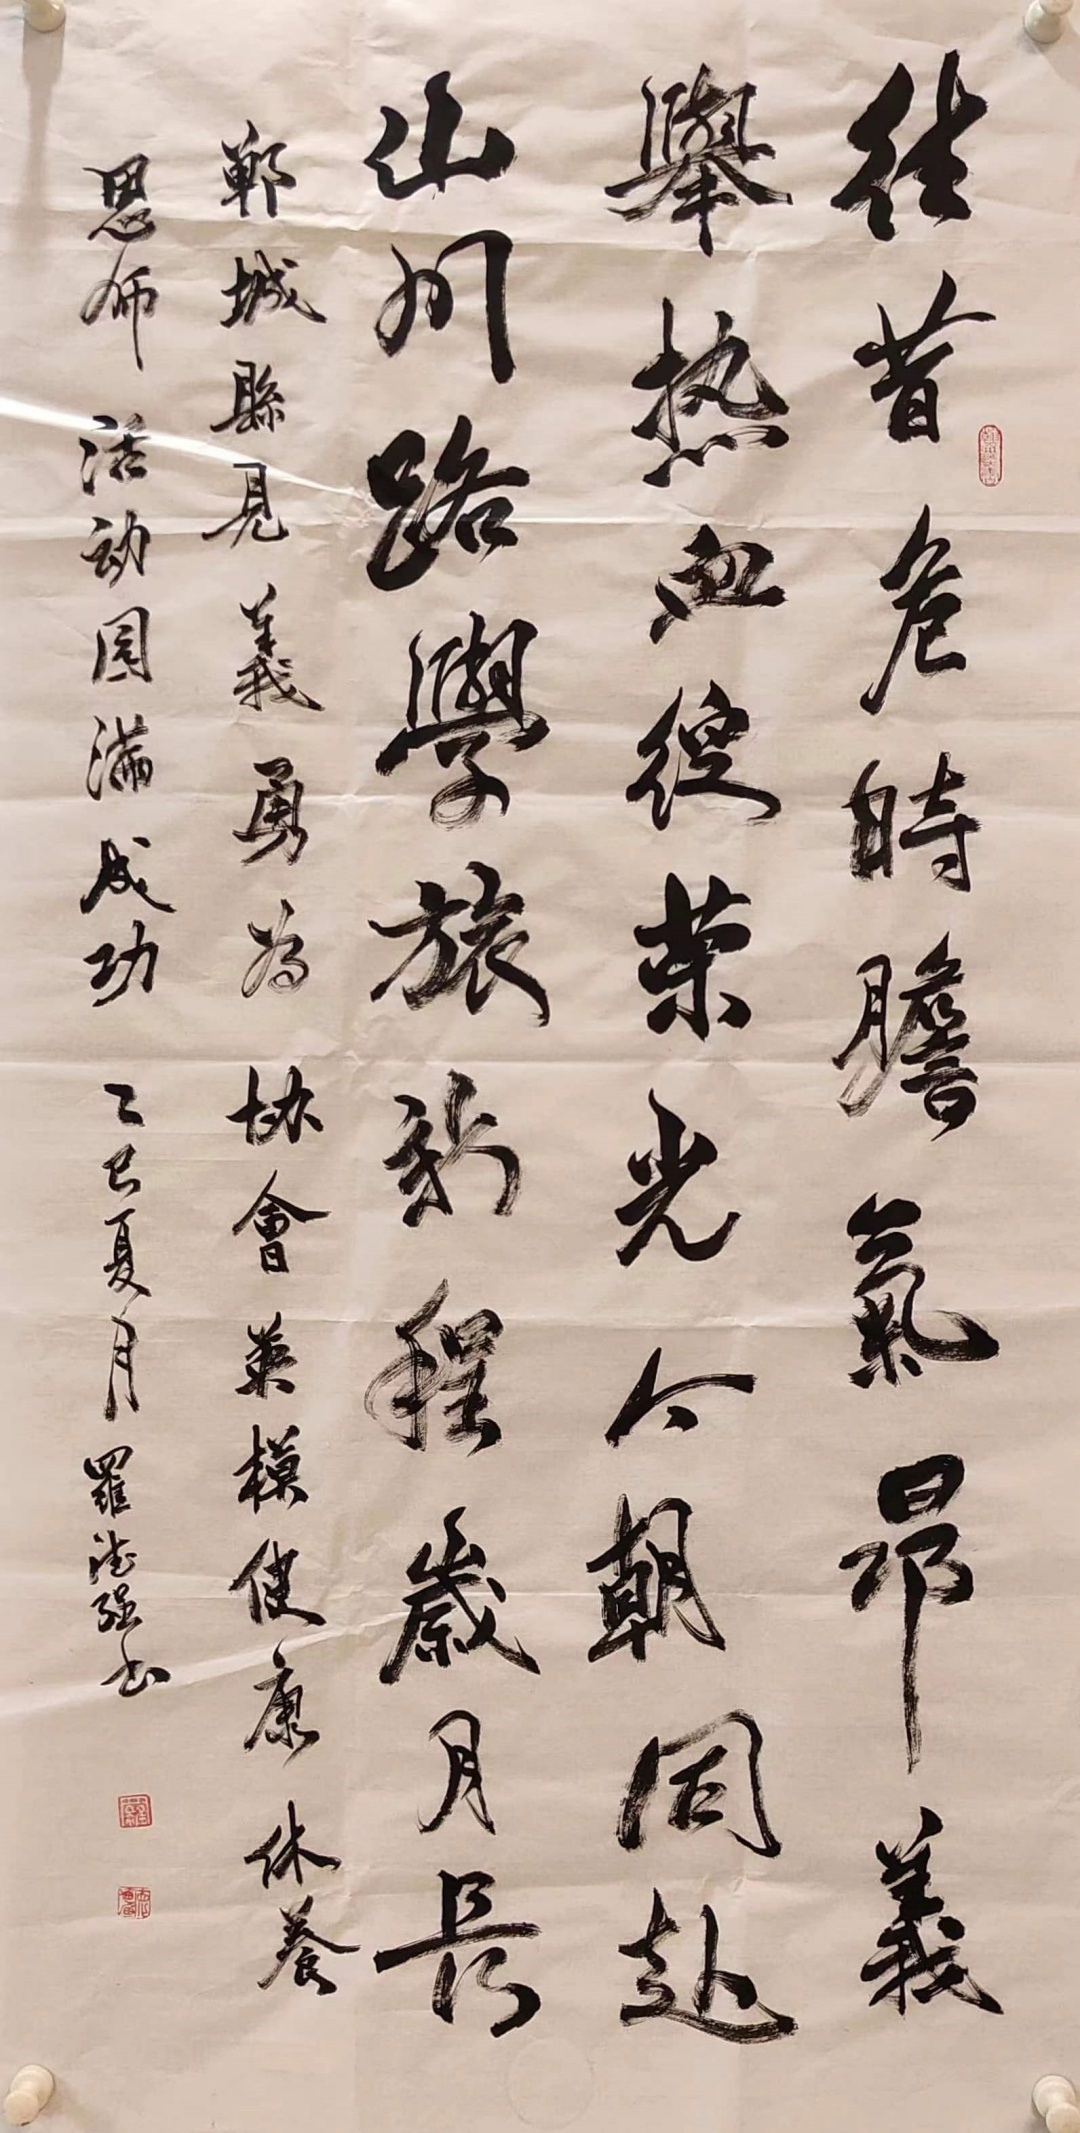 往昔危時膽氣昂義
舉热血绽荣光今朝同赴
山川路學旅新程歲月長
鄆城縣見義勇為協會英模健康休養
恩师活动圆满成功乙巳夏月羅德强书